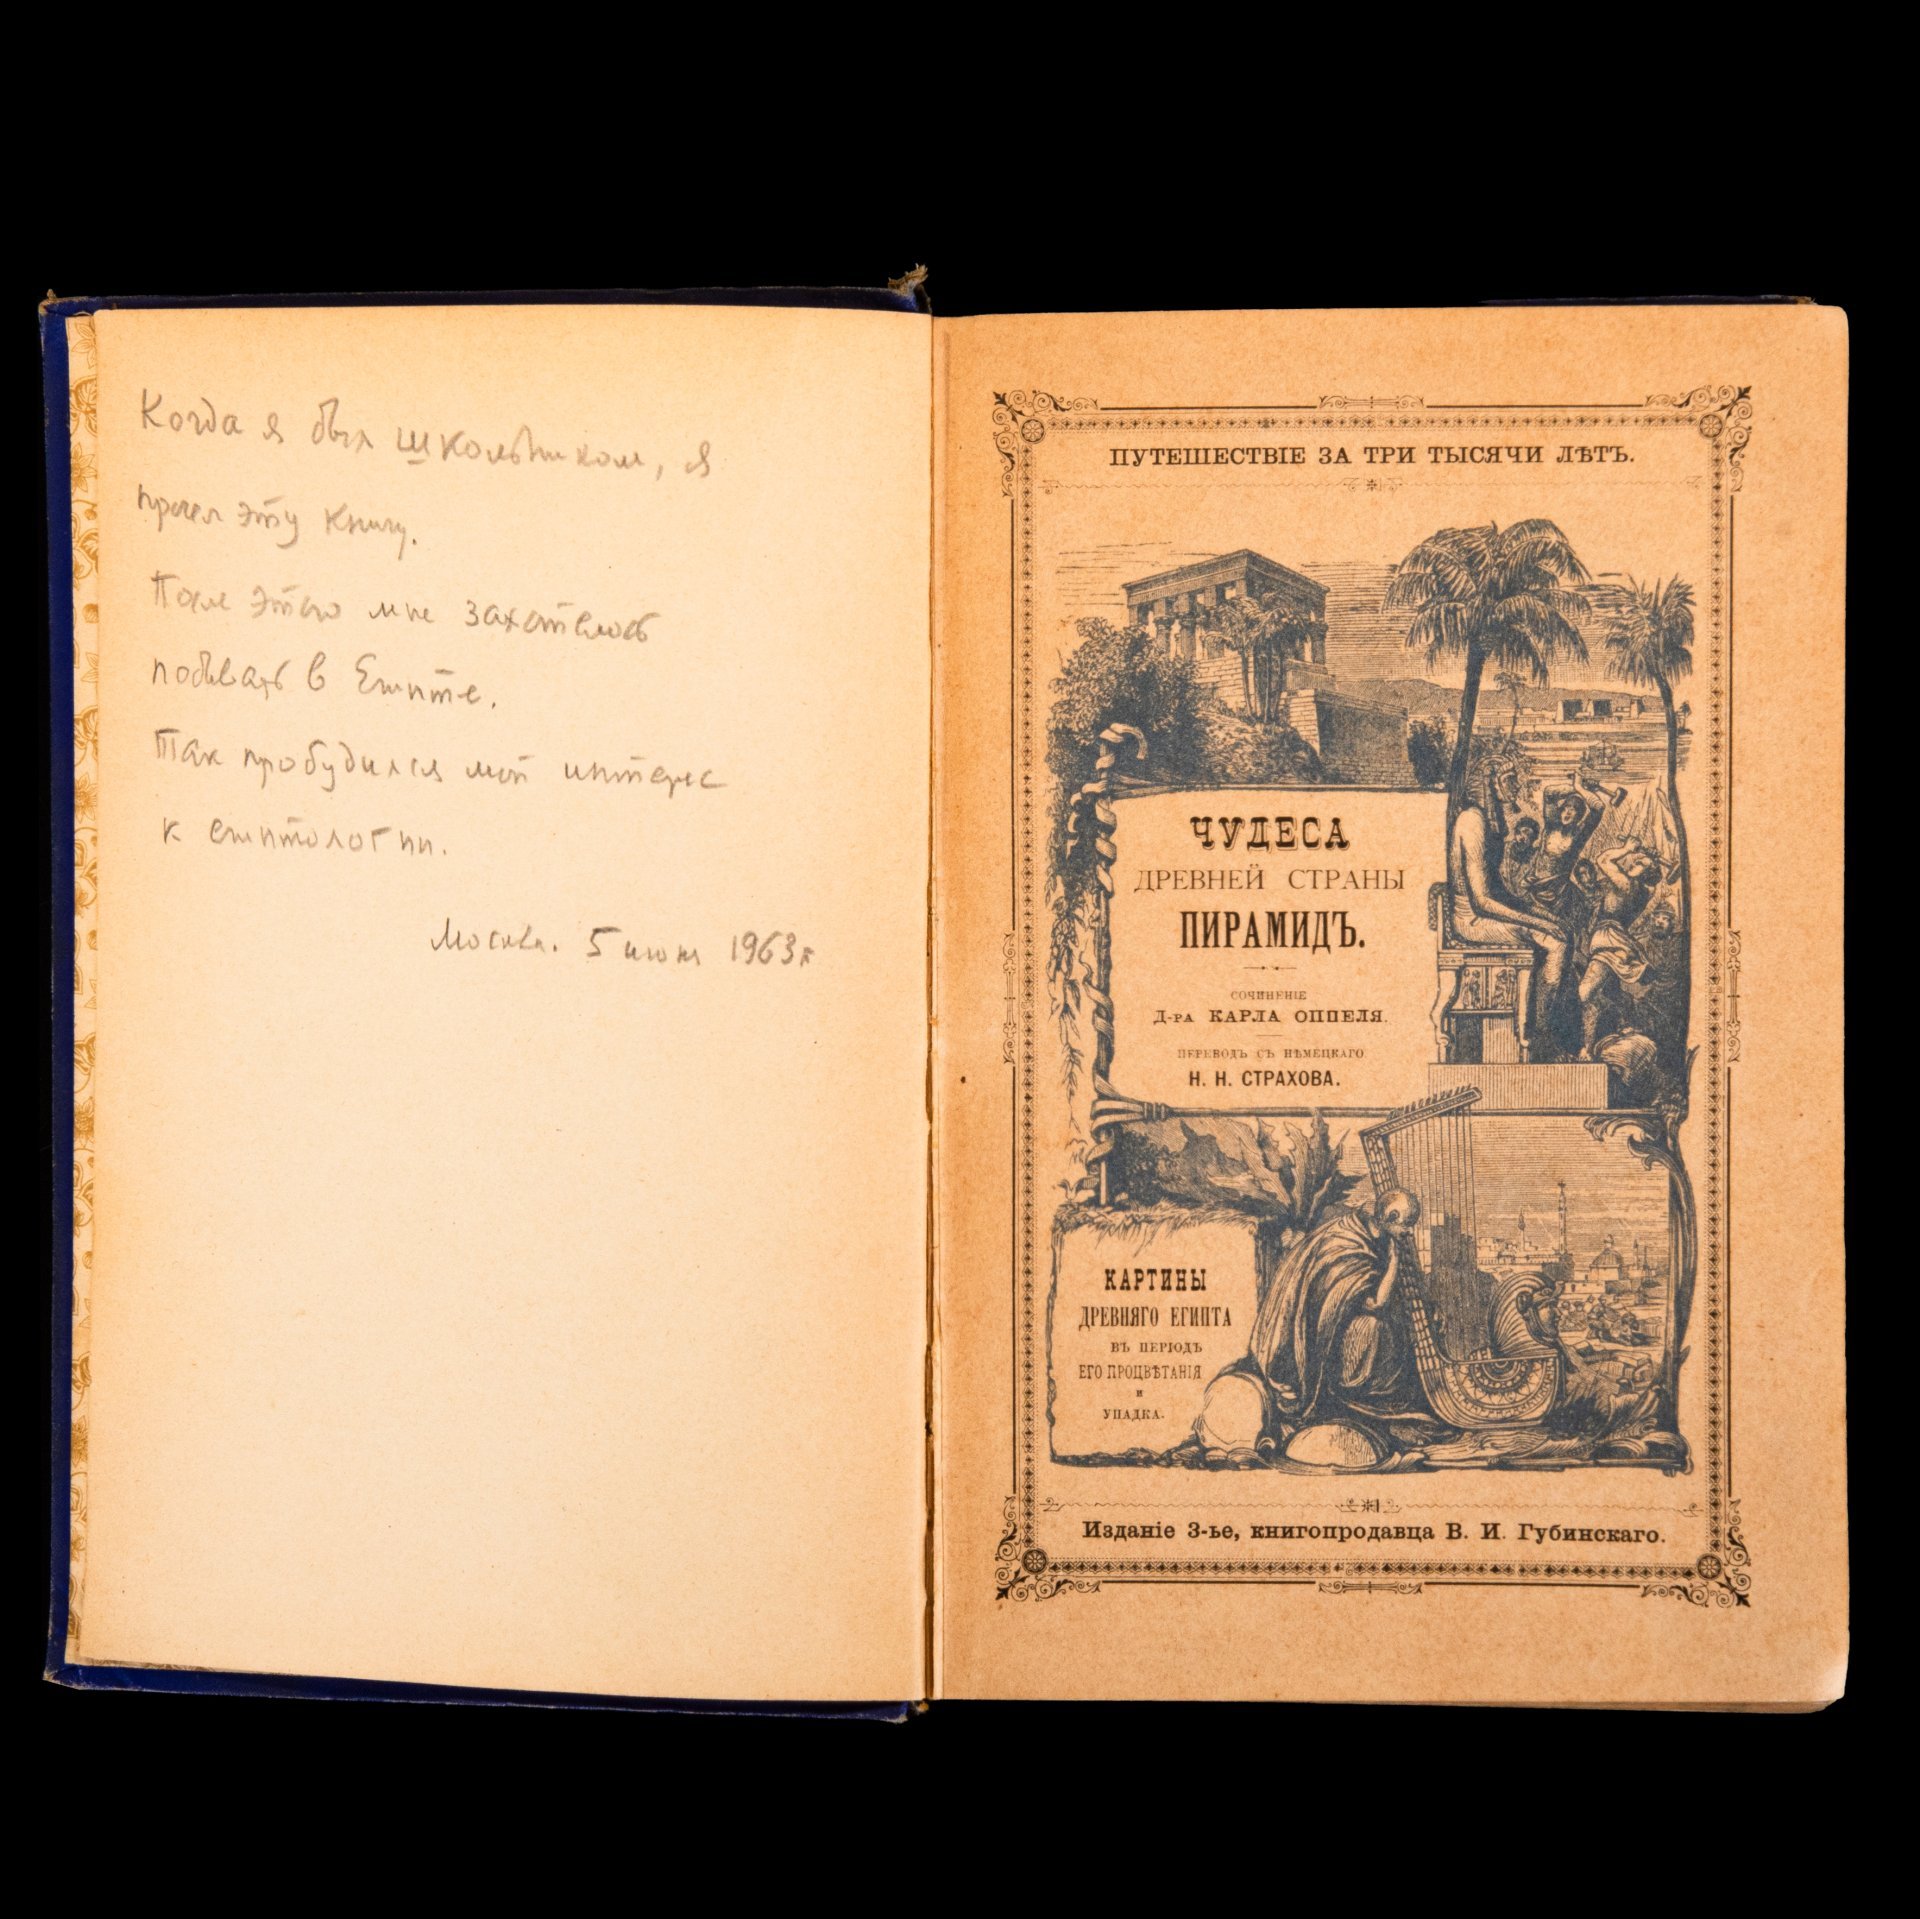 Когда я был школьником, я
прочел эту книгу.
После этого мне захотелось
побывать в Египте.
Так пробудился мой интерес
к египтологии.
Москва. 5 июня 1963 г
ПУТЕШЕСТВІЕ ЗА ТРИ ТЫСЯЧИ ЛѢТЪ.
ЧУДЕСА
ДРЕВНЕЙ СТРАНЫ
ПИРАМИДЪ.
СОЧИНЕНІЕ
Д-РА КАРЛА ОППЕЛЯ.
ПЕРЕВОДЪ СЪ НѢМЕЦКАГО
Н. Н. СТРАХОВА.
КАРТИНЫ
ДРЕВНЯГО ЕГИПТА
ВЪ ПЕРІОДЪ
ЕГО ПРОЦВѢТАНІЯ
И
УПАДКА.
Изданіе 3-ье, книгопродавца В. И. Губинскаго.